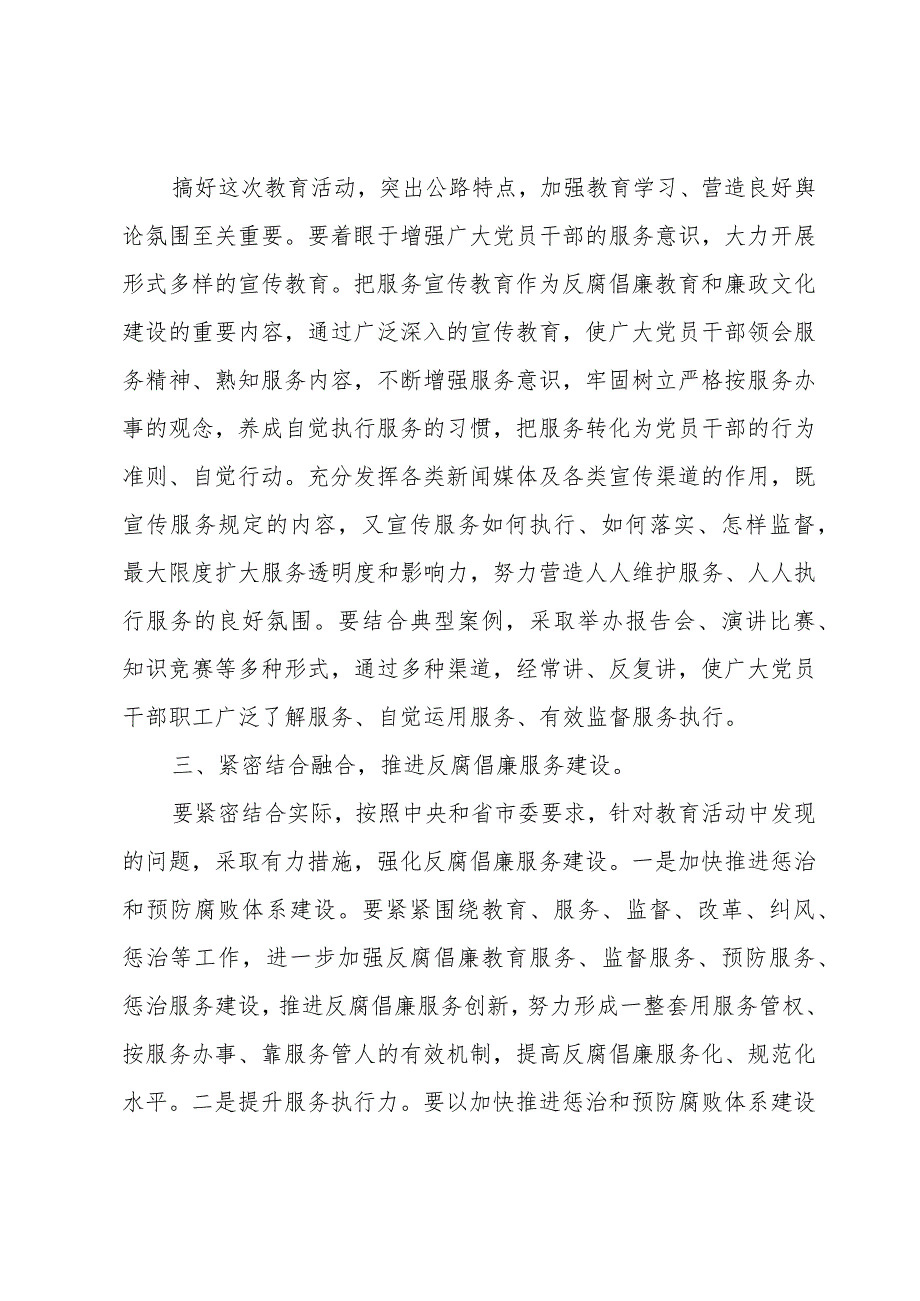 搞好这次教育活动，突出公路特点，加强教育学习、营造良好舆
论氛围至关重要。要着眼于增强广大党员干部的服务意识，大力开展
形式多样的宣传教育。把服务宣传教育作为反腐倡廉教育和廉政文化
建设的重要内容，通过广泛深入的宣传教育，使广大党员干部领会服
务精神、熟知服务内容，不断增强服务意识，牢固树立严格按服务办
事的观念，养成自觉执行服务的习惯，把服务转化为党员干部的行为
准则、自觉行动。充分发挥各类新闻媒体及各类宣传渠道的作用，既
宣传服务规定的内容，又宣传服务如何执行、如何落实、怎样监督，
最大限度扩大服务透明度和影响力，努力营造人人维护服务、人人执
行服务的良好氛围。要结合典型案例，采取举办报告会、演讲比赛、
知识竞赛等多种形式，通过多种渠道，经常讲、反复讲，使广大党员
干部职工广泛了解服务、自觉运用服务、有效监督服务执行。
三、紧密结合融合，推进反腐倡廉服务建设。
要紧密结合实际，按照中央和省市委要求，针对教育活动中发现
的问题，采取有力措施，强化反腐倡廉服务建设。一是加快推进惩治
和预防腐败体系建设。要紧紧围绕教育、服务、监督、改革、纠风、
惩治等工作，进一步加强反腐倡廉教育服务、监督服务、预防服务、
惩治服务建设，推进反腐倡廉服务创新，努力形成一整套用服务管权、
按服务办事、靠服务管人的有效机制，提高反腐倡廉服务化、规范化
水平。二是提升服务执行力。要以加快推进惩治和预防腐败体系建设